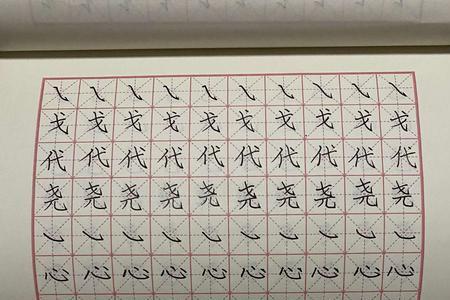 ㇂ ㇂ ㇂ ㇂ ㇂ ㇂ ㇂ ㇂ ㇂ ㇂
戈 戈 戈 戈 戈 戈 戈 戈 戈 戈
代 代 代 代 代 代 代 代 代 代
尧 尧 尧 尧 尧 尧 尧 尧 尧 尧
㇃ ㇃ ㇃ ㇃ ㇃ ㇃ ㇃ ㇃ ㇃ ㇃
心 心 心 心 心 心 心 心 心 心